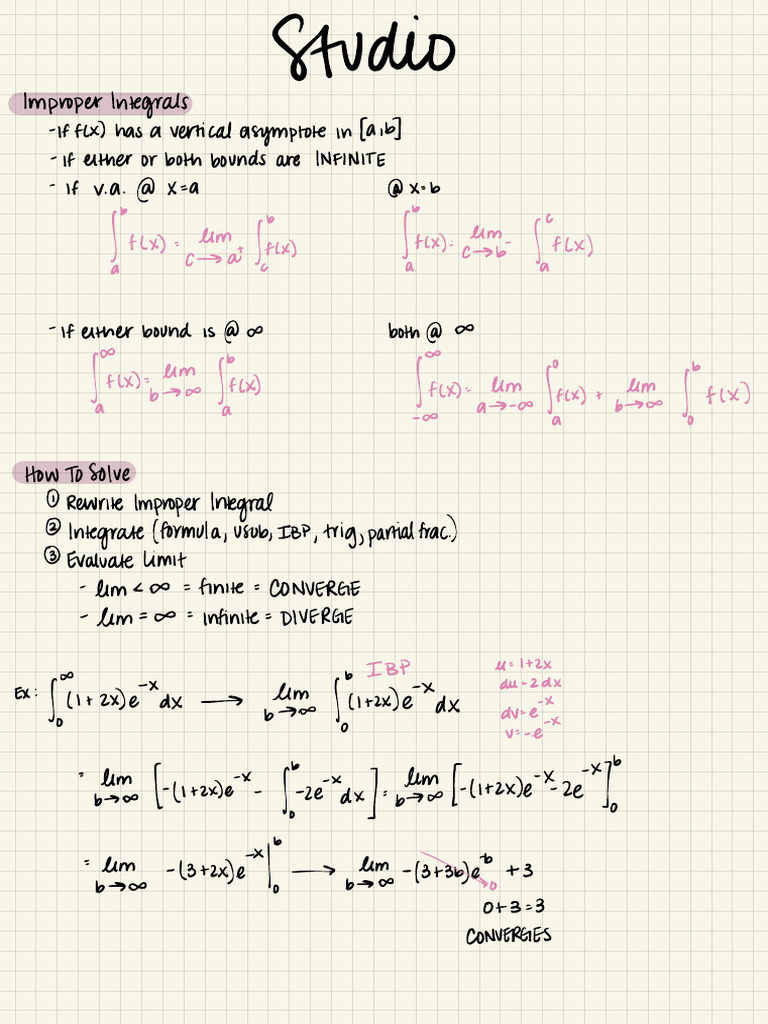 Studio
Improper Integrals
- If f(x) has a vertical asymptote in [a,b]
- if either or both bounds are INFINITE
- If v.a. @ x=a @ x=b
∫_a^b f(x) = lim_{c→a⁺} ∫_c^b f(x) ∫_a^b f(x) = lim_{c→b⁻} ∫_a^c f(x)
- If either bound is @ ∞ both @ ∞
∫_a^∞ f(x) = lim_{b→∞} ∫_a^b f(x) ∫_{-∞}^∞ f(x) = lim_{a→-∞} ∫_a^0 f(x) + lim_{b→∞} ∫_0^b f(x)
How To Solve
① Rewrite Improper Integral
② Integrate (formula, usub, IBP, trig, partial frac.)
③ Evaluate Limit
- lim < ∞ = finite = CONVERGE
- lim = ∞ = infinite = DIVERGE
Ex: ∫_0^∞ (1+2x)e^{-x} dx → lim_{b→∞} ∫_0^b (1+2x)e^{-x} dx
IBP
u=1+2x
du=2dx
dv=e^{-x}
v=-e^{-x}
= lim_{b→∞} [-(1+2x)e^{-x} - ∫_0^b -2e^{-x} dx] = lim_{b→∞} [-(1+2x)e^{-x} - 2e^{-x}]_0^b
= lim_{b→∞} -(3+2x)e^{-x} |_0^b → lim_{b→∞} -(3+3b)e^{-b} + 3
0
0+3=3
CONVERGES